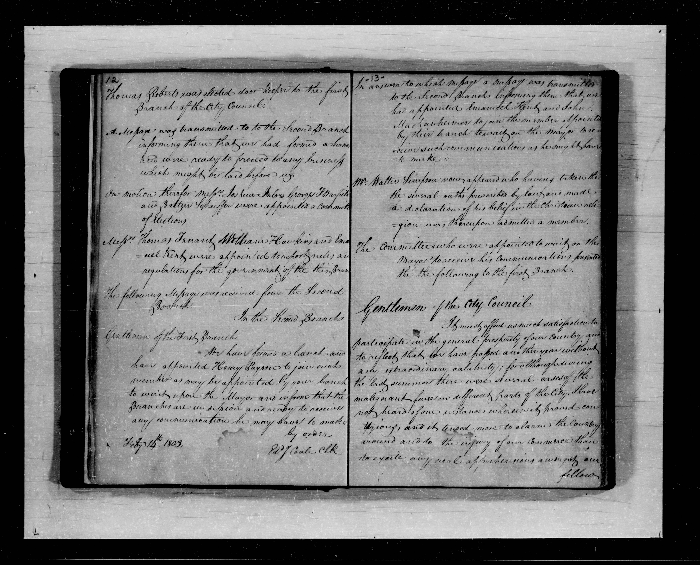 12
Thomas Roberts was elected door keeper to the first
Branch of the City Council.
A Message was transmitted to to the Second Branch
informing them that we had formed a house
and were ready to proceed to any business
which might be laid before us.
On motion therefor Messrs. Joshua
and were appointed a Committee
of Elections
Messrs. Thomas William Hawkins and
Kent were appointed to report rules and
regulations for the government of the
The following Message was received from the Second
Branch.
In the Second Branch
Gentlemen of the First Branch
We have formed a branch and
have appointed Henry Payson to join such
member as may be appointed by your branch
to wait upon the Mayor and inform that the
Branches are in session and ready to receive
any communication he may have to make
by order
Feby. 14th 1803
Clk
13
In answer to which message a message was transmitted
to the Second Branch informing them that we
had appointed Emanuel Kent and John
to join the member appointed
by their branch to wait on the Mayor to re-
ceive such communications as he might have
to make.
Mr. Walter Simpson now appeared who having taken the
the several oaths prescribed by law, and made
a declaration of his belief in the Christian reli-
gion was thereupon admitted a member.
The Committee who were appointed to wait on the
Mayor to receive his Communications presented
the the following to the first Branch.
Gentlemen of the City Council
It must afford us much satisfaction to
participate in the general prosperity of our Country and
to reflect that we have passed another year without
any extraordinary calamity; for although during
the last summer there were several cases of the
malignant fever in different parts of the City, I have
not heard of one instance where it proved con-
tagious, and it tended more to alarm the Country
around and to the injury of our Commerce than
to excite any real apprehensions amongst our
fellow